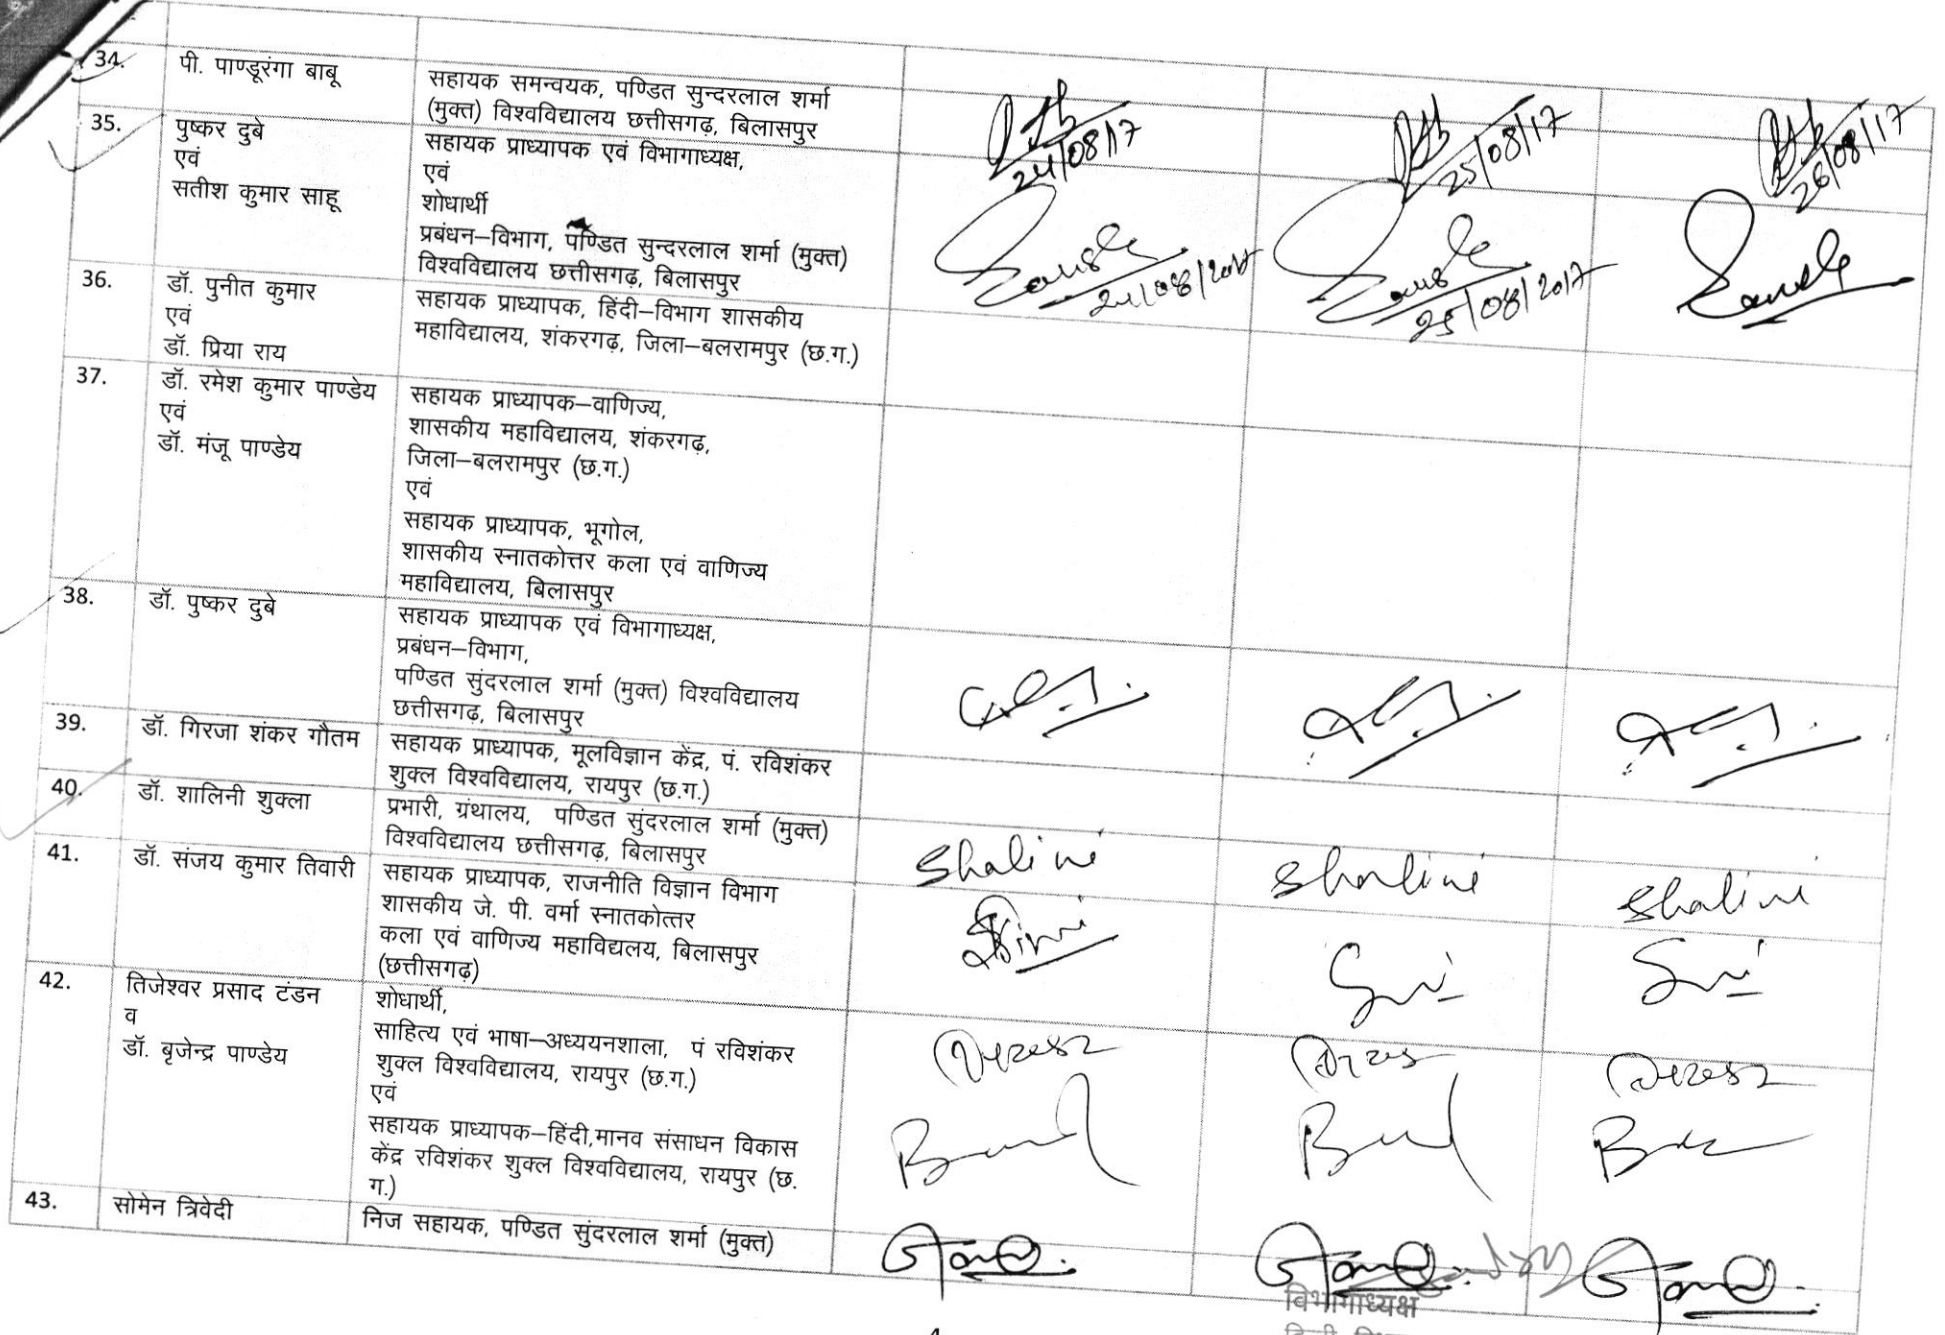 34.
पी. पाण्डूरंगा बाबू
सहायक समन्वयक, पण्डित सुन्दरलाल शर्मा
(मुक्त) विश्वविद्यालय छत्तीसगढ़, बिलासपुर
24/08/17
25/08/17
26/08/17
35.
पुष्कर दुबे
एवं
सतीश कुमार साहू
सहायक प्राध्यापक एवं विभागाध्यक्ष,
एवं
शोधार्थी
प्रबंधन–विभाग, पण्डित सुन्दरलाल शर्मा (मुक्त)
विश्वविद्यालय छत्तीसगढ़, बिलासपुर
24/08/2017
25/08/2017
36.
डॉ. पुनीत कुमार
एवं
डॉ. प्रिया राय
सहायक प्राध्यापक, हिंदी–विभाग शासकीय
महाविद्यालय, शंकरगढ़, जिला–बलरामपुर (छ.ग.)
37.
डॉ. रमेश कुमार पाण्डेय
एवं
डॉ. मंजू पाण्डेय
सहायक प्राध्यापक–वाणिज्य,
शासकीय महाविद्यालय, शंकरगढ़,
जिला–बलरामपुर (छ.ग.)
एवं
सहायक प्राध्यापक, भूगोल,
शासकीय स्नातकोत्तर कला एवं वाणिज्य
महाविद्यालय, बिलासपुर
38.
डॉ. पुष्कर दुबे
सहायक प्राध्यापक एवं विभागाध्यक्ष,
प्रबंधन–विभाग,
पण्डित सुंदरलाल शर्मा (मुक्त) विश्वविद्यालय
छत्तीसगढ़, बिलासपुर
39.
डॉ. गिरजा शंकर गौतम
सहायक प्राध्यापक, मूलविज्ञान केंद्र, पं. रविशंकर
शुक्ल विश्वविद्यालय, रायपुर (छ.ग.)
40.
डॉ. शालिनी शुक्ला
प्रभारी, ग्रंथालय, पण्डित सुंदरलाल शर्मा (मुक्त)
विश्वविद्यालय छत्तीसगढ़, बिलासपुर
Shalini
Shalini
Shalini
41.
डॉ. संजय कुमार तिवारी
सहायक प्राध्यापक, राजनीति विज्ञान विभाग
शासकीय जे. पी. वर्मा स्नातकोत्तर
कला एवं वाणिज्य महाविद्यलय, बिलासपुर
(छत्तीसगढ़)
42.
तिजेश्वर प्रसाद टंडन
व
डॉ. बृजेन्द्र पाण्डेय
शोधार्थी,
साहित्य एवं भाषा–अध्ययनशाला, पं रविशंकर
शुक्ल विश्वविद्यालय, रायपुर (छ.ग.)
एवं
सहायक प्राध्यापक–हिंदी,मानव संसाधन विकास
केंद्र रविशंकर शुक्ल विश्वविद्यालय, रायपुर (छ.
ग.)
43.
सोमेन त्रिवेदी
निज सहायक, पण्डित सुंदरलाल शर्मा (मुक्त)
विभागाध्यक्ष